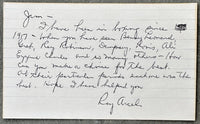 Jim -
I have been in boxing since
19?? - When you have seen Benny Leonard
Greb, Ray Robinson, Dempsey, Louis, Ali
and so many others - How
can you make a choice for the best
At their particular periods each one was the
best. Hope I have helped you
Ray Arcel